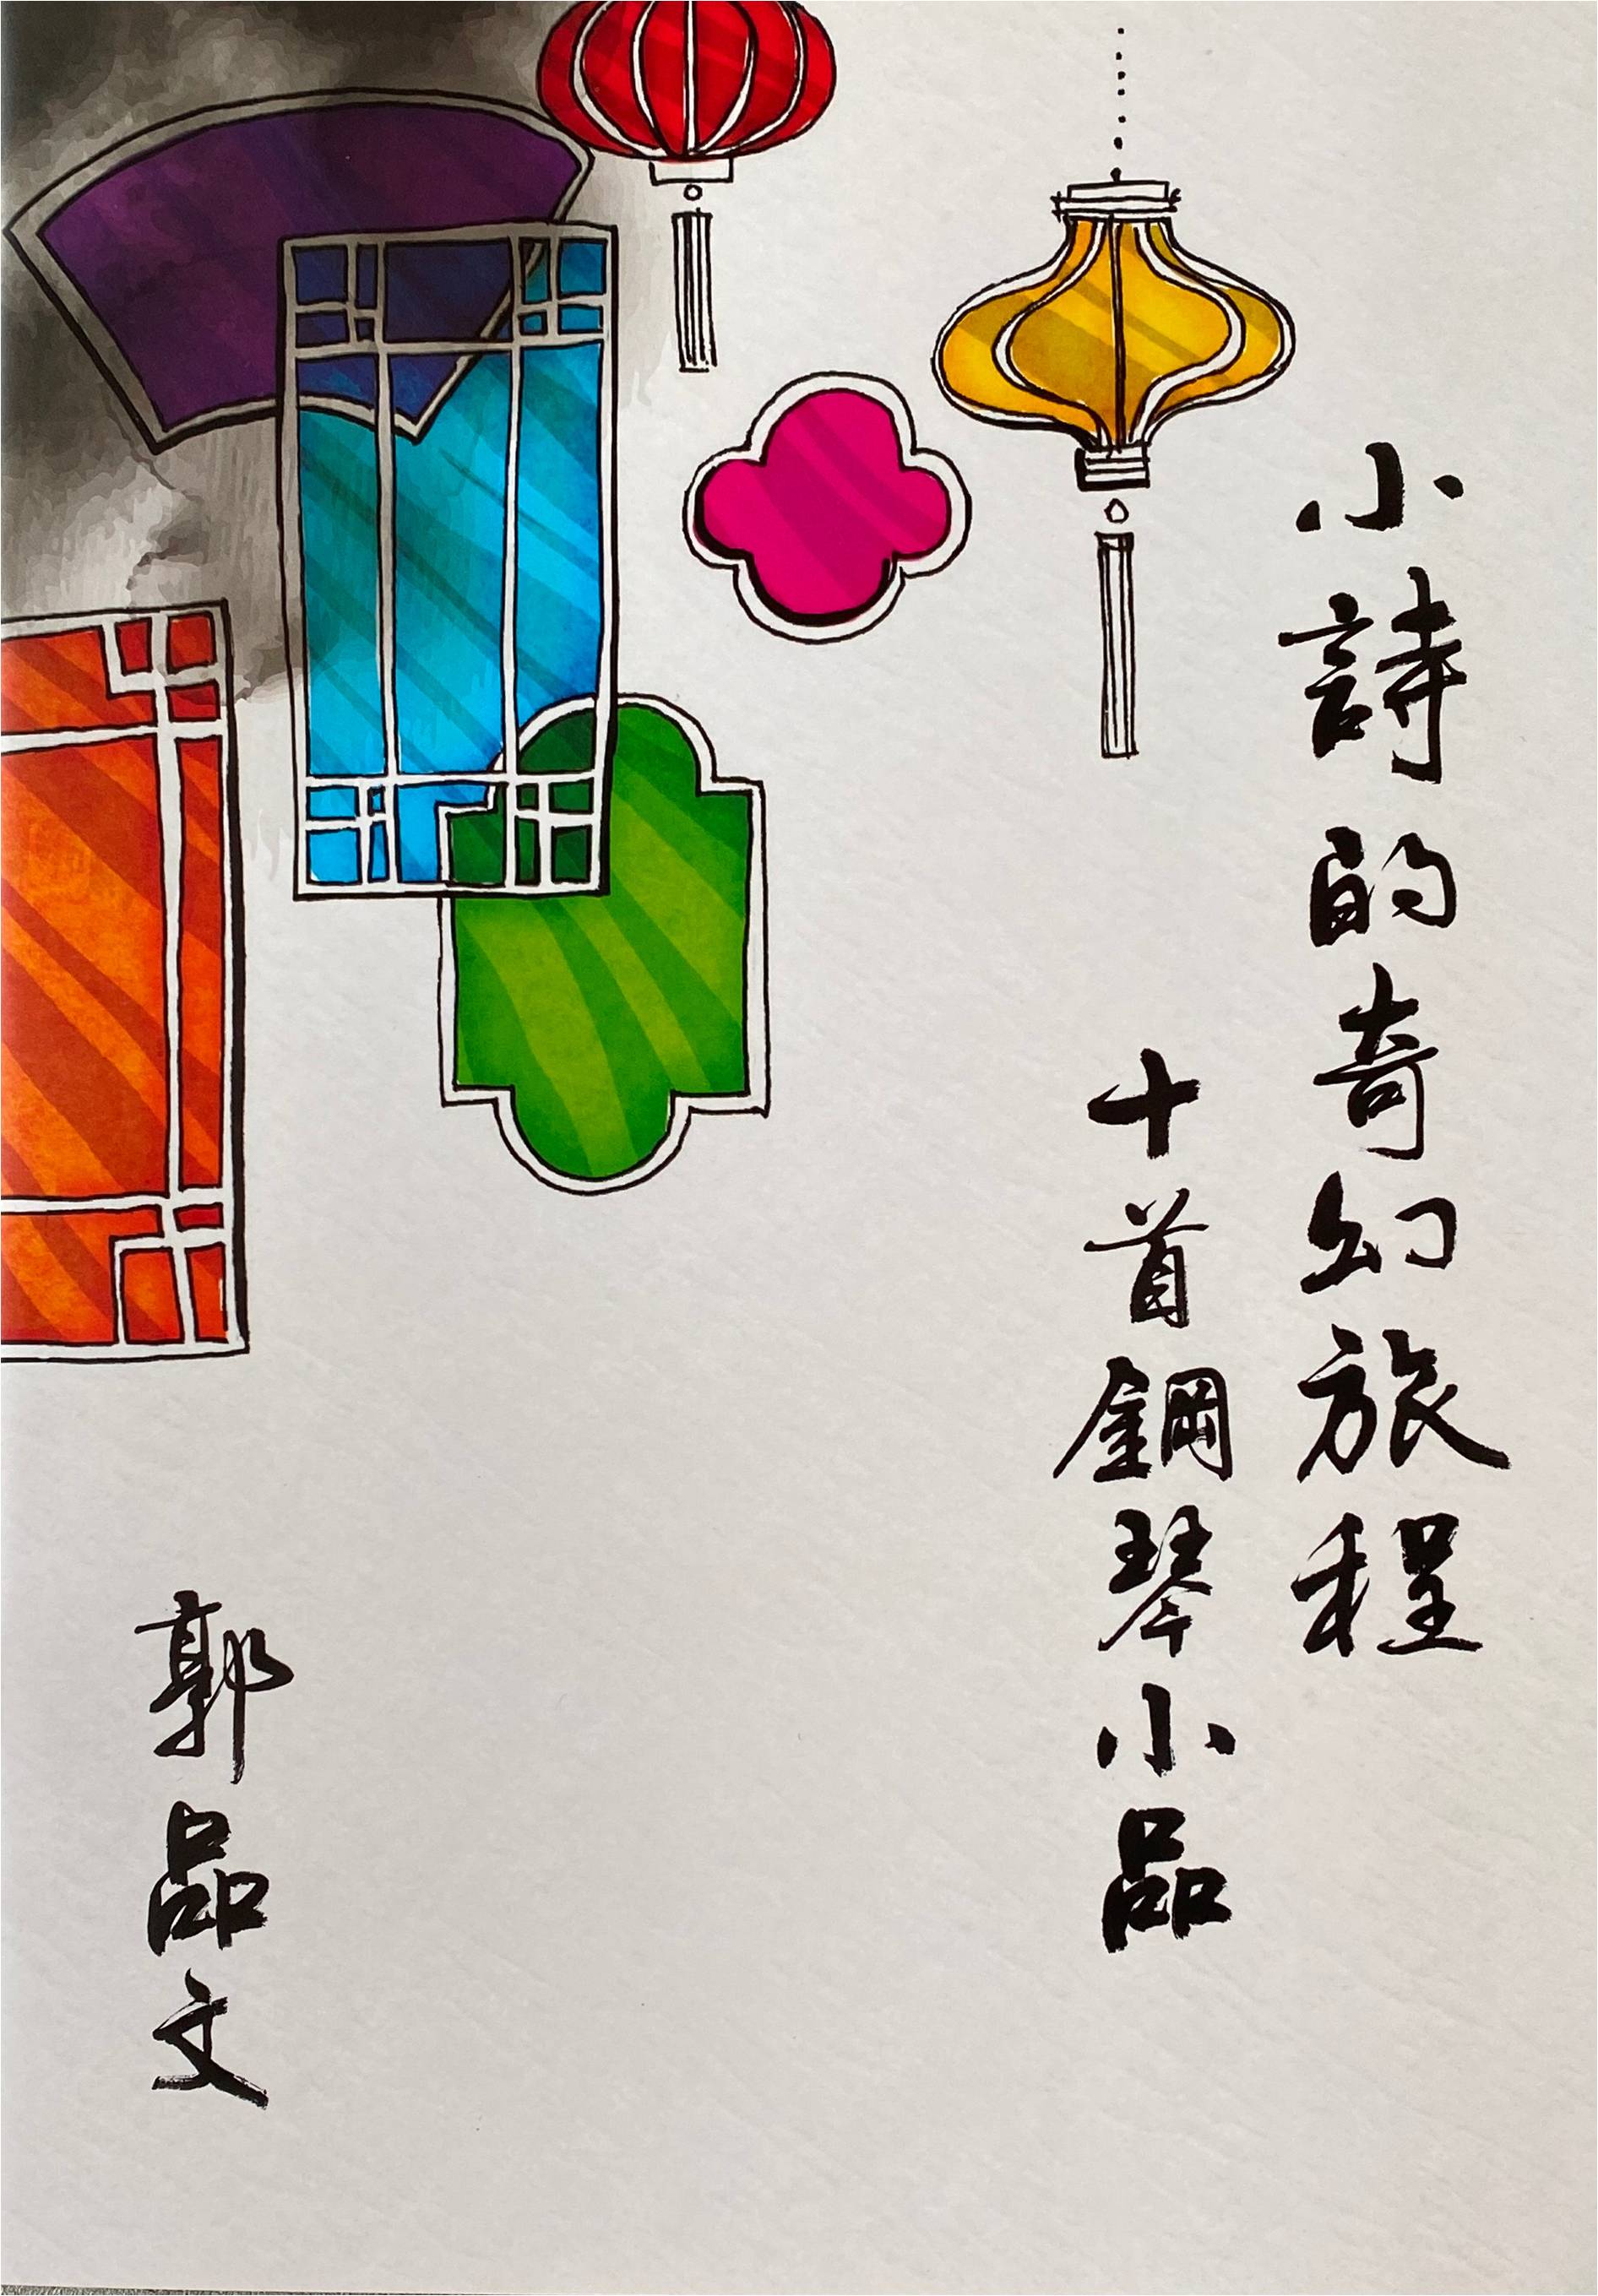 小詩的奇幻旅程
十首鋼琴小品
郭品文